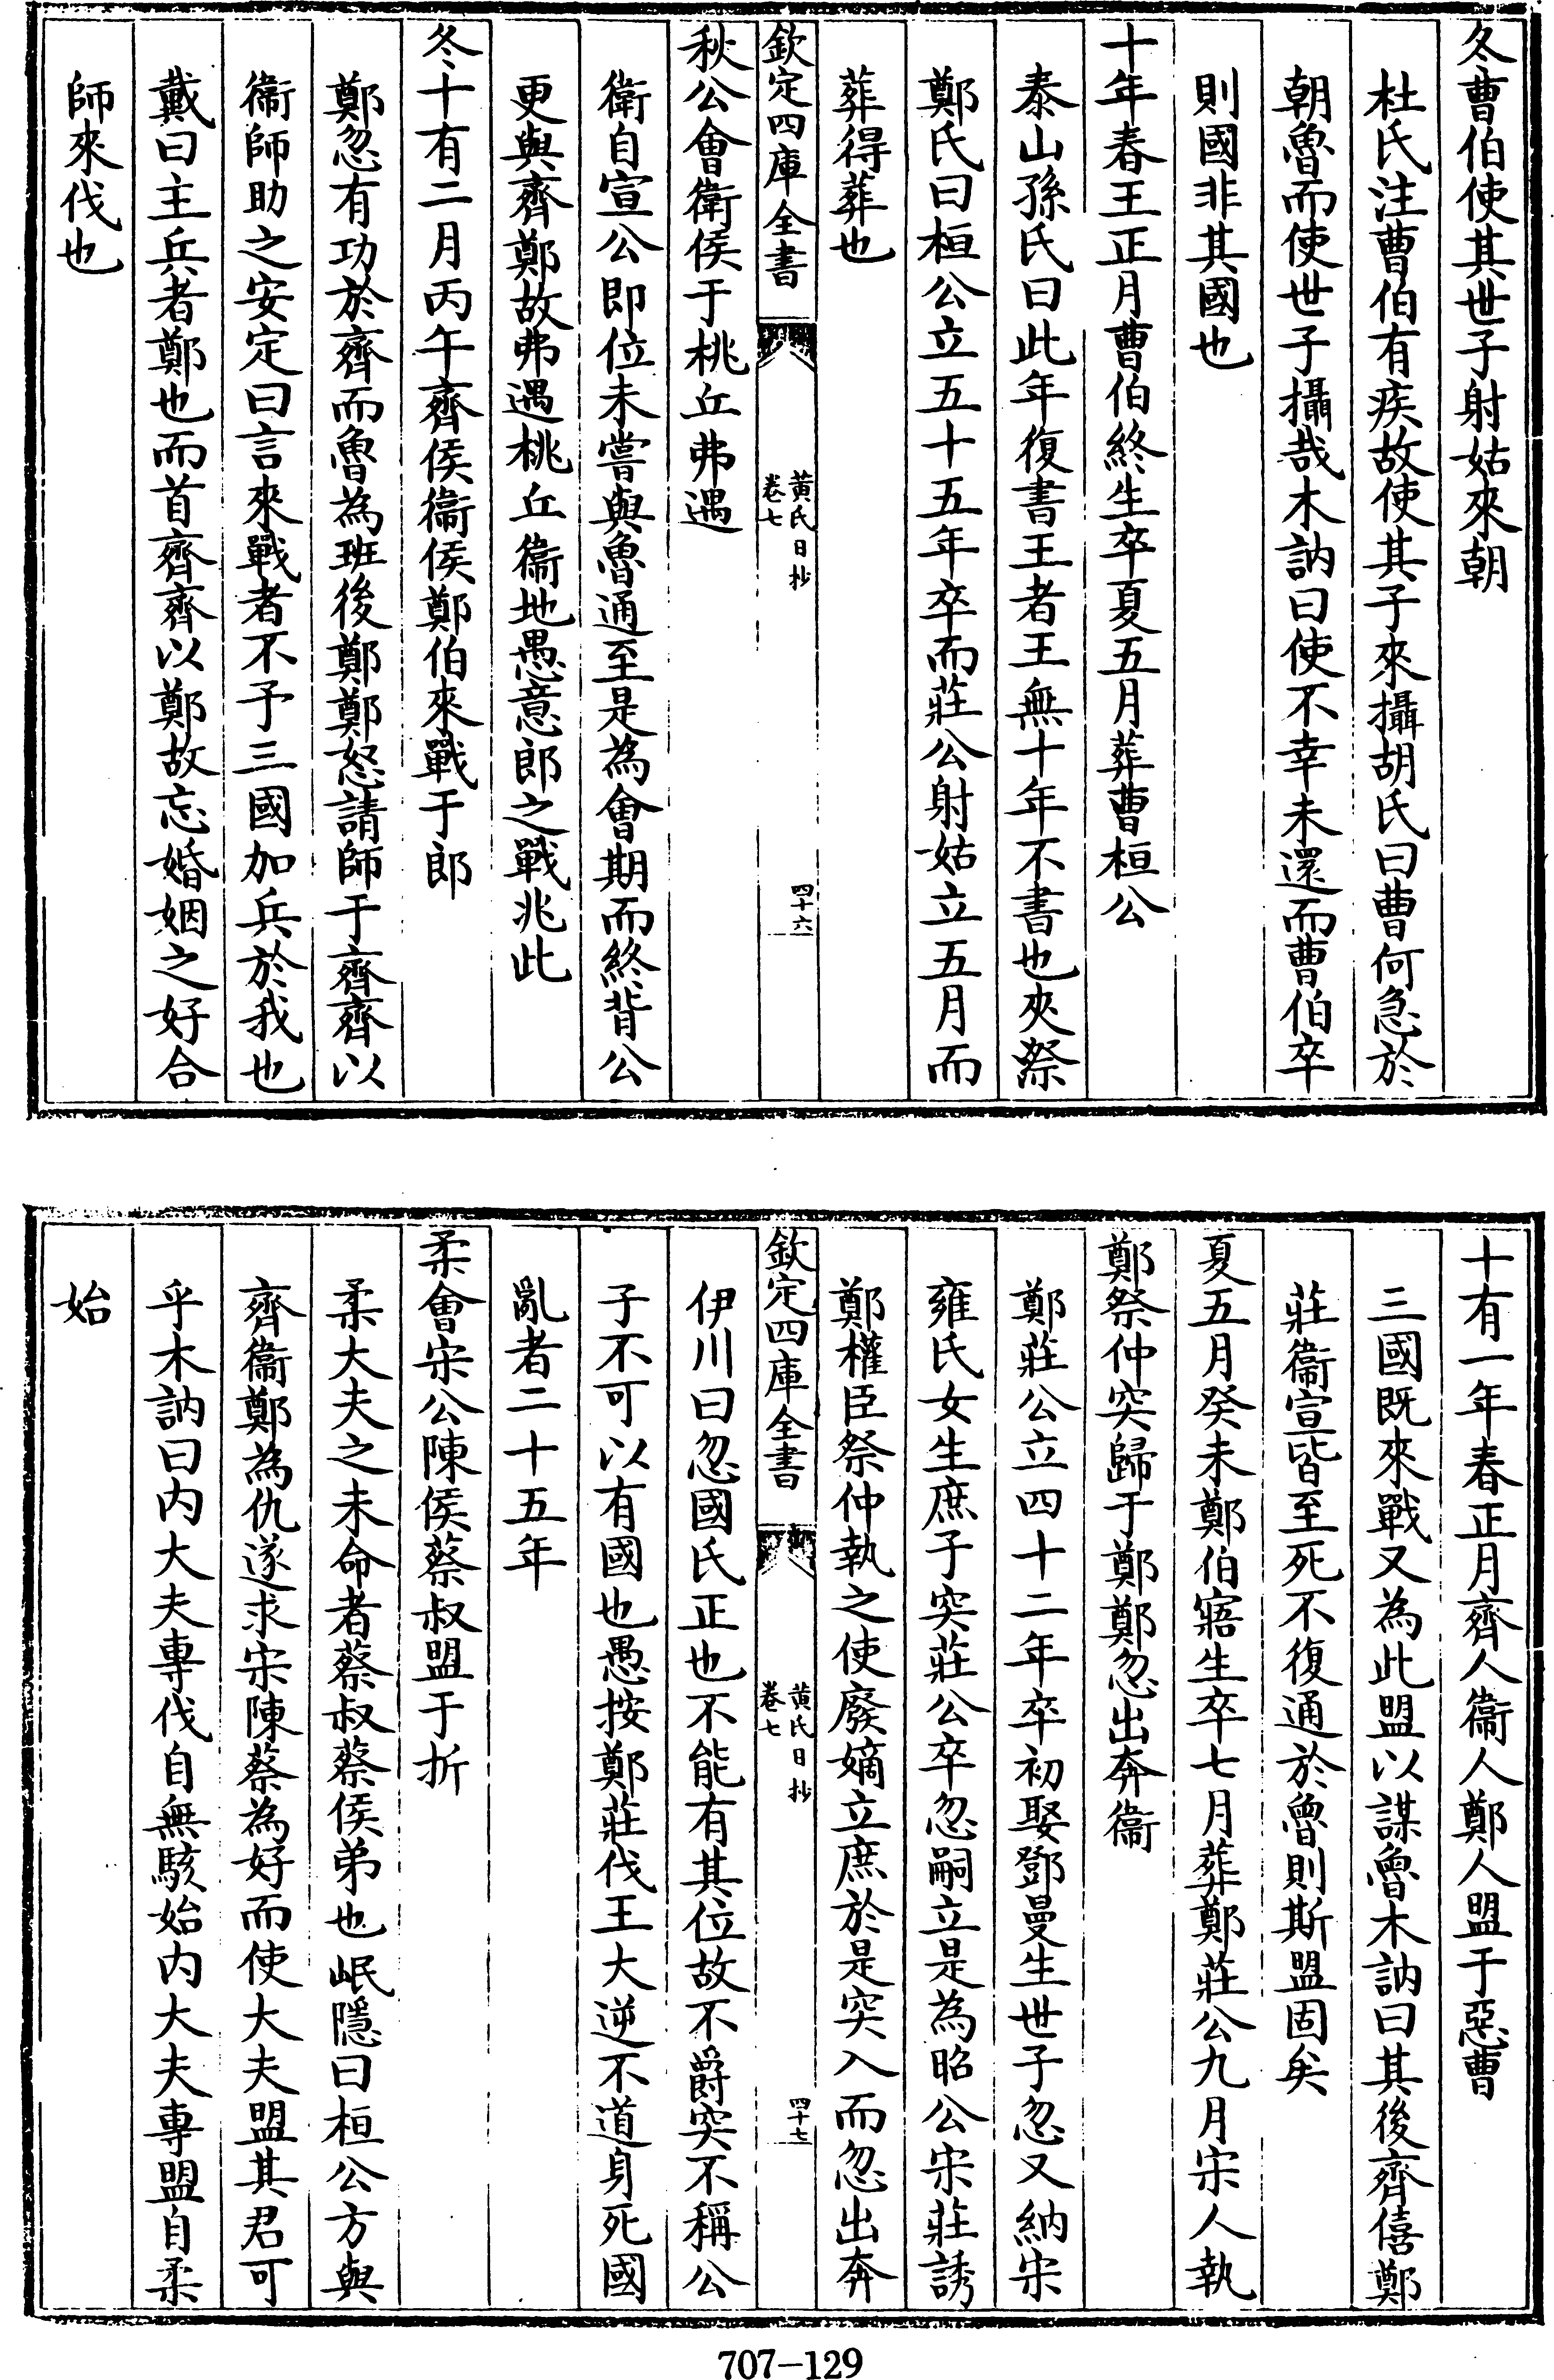 冬曹伯使其世子射姑來朝
杜氏注曹伯有疾故使其子來攝胡氏曰曹何急於
朝魯而使世子攝哉木訥曰使不幸未還而曹伯卒
則國非其國也
十年春王正月曹伯終生卒夏五月葬曹桓公
泰山孫氏曰此年復書王者王無十年不書也夾漈
鄭氏曰桓公立五十五年卒而莊公射姑立五月而
葬得葬也
欽定四庫全書
黄氏日抄
卷七
四十六
秋公會衛侯于桃丘弗遇
衛自宣公即位未嘗與魯通至是為會期而終背公
更與齊鄭故弗遇桃丘衞地愚意郎之戰兆此
冬十有二月丙午齊侯衞侯鄭伯來戰于郎
鄭忽有功於齊而魯為班後鄭鄭怒請師于齊齊以
衞師助之安定曰言來戰者不予三國加兵於我也
戴曰主兵者鄭也而首齊齊以鄭故忘婚姻之好合
師來伐也
十有一年春正月齊人衞人鄭人盟于惡曹
三國既來戰又為此盟以謀魯木訥曰其後齊僖鄭
莊衞宣皆至死不復通於魯則斯盟固矣
夏五月癸未鄭伯寤生卒七月葬鄭莊公九月宋人執
鄭祭仲突歸于鄭鄭忽出奔衞
鄭莊公立四十二年卒初娶鄧曼生世子忽又納宋
雍氏女生庶子突莊公卒忽嗣立是為昭公宋莊誘
鄭權臣祭仲執之使廢嫡立庶於是突入而忽出奔
欽定四庫全書
黄氏日抄
卷七
四十七
伊川曰忽國氏正也不能有其位故不爵突不稱公
子不可以有國也愚按鄭莊伐王大逆不道身死國
亂者二十五年
柔會宋公陳侯蔡叔盟于折
柔大夫之未命者蔡叔蔡侯弟也岷隱曰桓公方與
齊衞鄭為仇遂求宋陳蔡為好而使大夫盟其君可
乎木訥曰内大夫專伐自無駭始内大夫專盟自柔
始
707-129